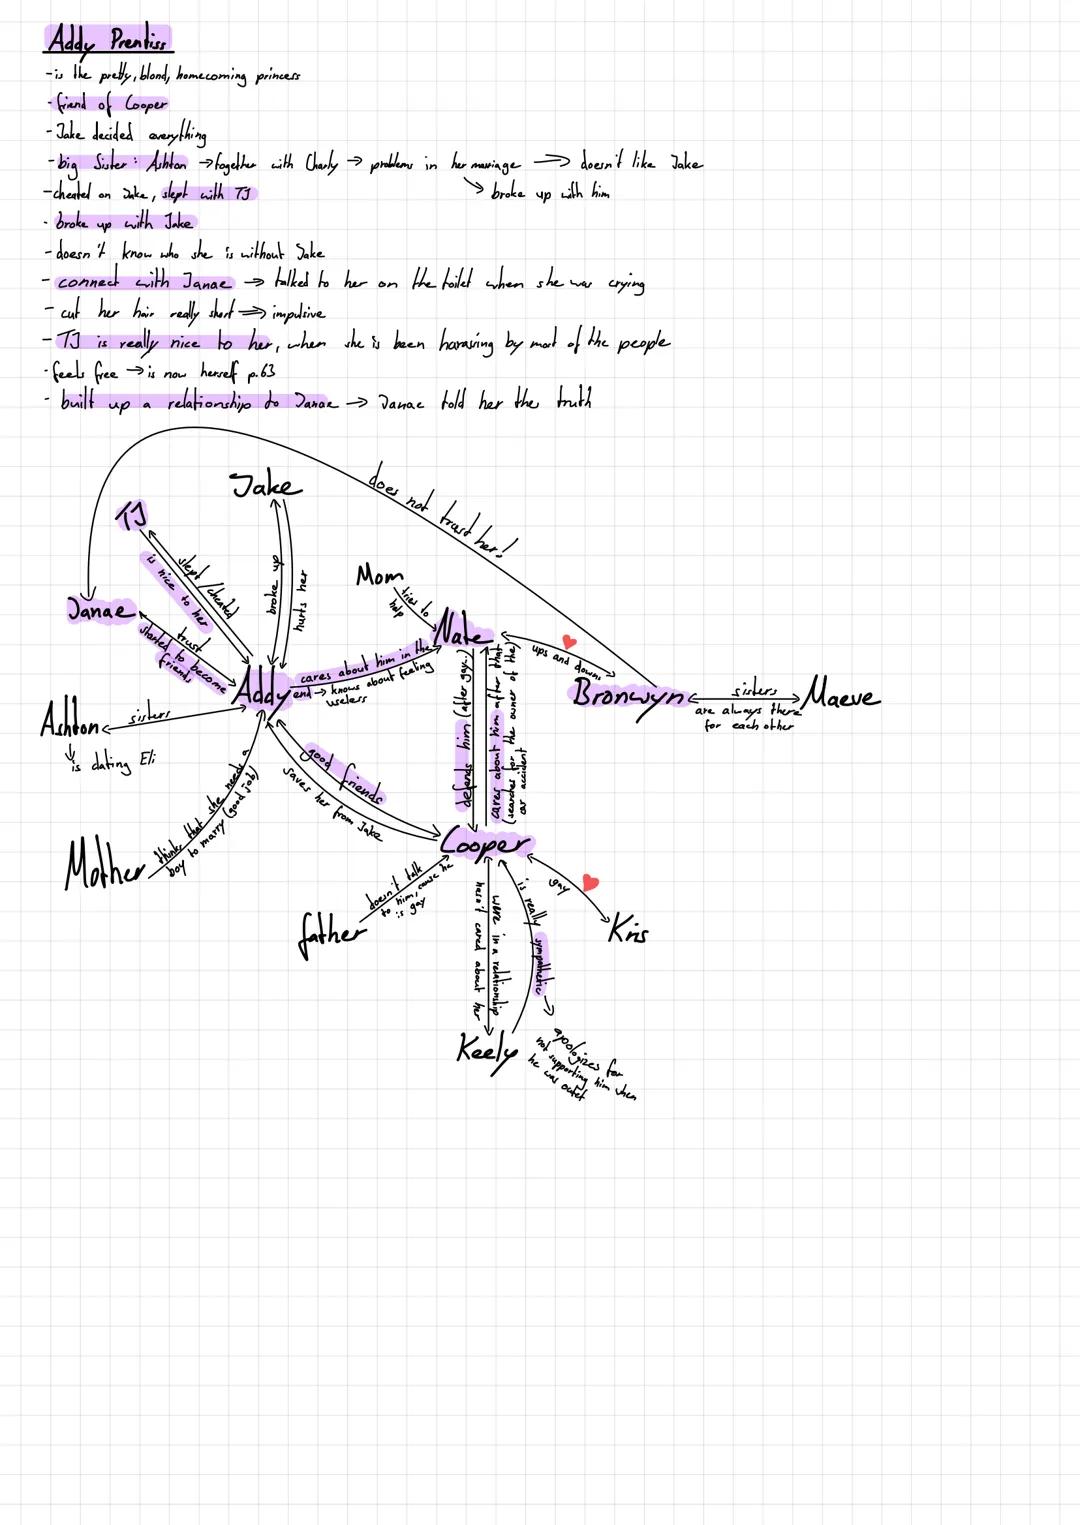 Addy Prentiss
- is the pretty, blond, homecoming princess
- friend of Cooper
- Jake decided everything
- big Sister: Ashton → together with Charly → problems in her marriage ⟹ doesn't like Jake
↘ broke up with him
- cheated on Jake, slept with TJ
- broke up with Jake
- doesn't know who she is without Jake
- connect with Janae → talked to her on the toilet when she was crying
- cut her hair really short ⟹ impulsive
- TJ is really nice to her, when she is been harasing by most of the people
- feels free → is now herself p.63
- built up a relationship to Janae → Janae told her the truth
does not trust her!
Jake
TJ
slept / cheated
is nice to her
broke up
hurts her
Mom
tries to
help
Janae
trust
started to become
friends
Nate
ups and downs
Addy
cares about him in the
end → knows about feeling
useless
Bronwyn
sisters
are always there
for each other
Maeve
Ashton
sisters
↓
is dating Eli
defends him (after gay..)
cares about him after that
(searches for the owner of the
car accident
good friends
saves her from Jake
Mother
thinks that she needs a
boy to marry (good job)
Cooper
father
doesn't talk
to him, cause he
is gay
gay
Kris
were in a relationship
hasn't cared about her
is really sympathetic
→ apologizes for
not supporting him when
he was outet
Keely